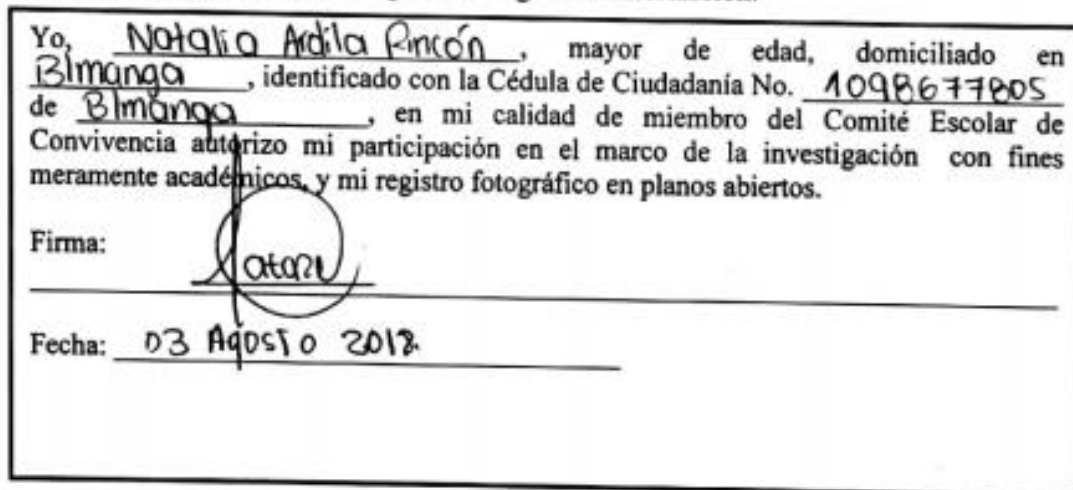 Yo, Natalia Ardila Rincón, mayor de edad, domiciliado en
B/manga, identificado con la Cédula de Ciudadanía No. 1098677805
de B/manga, en mi calidad de miembro del Comité Escolar de
Convivencia autorizo mi participación en el marco de la investigación con fines
meramente académicos, y mi registro fotográfico en planos abiertos.
Firma:
Fecha: 03 Agosto 2018.